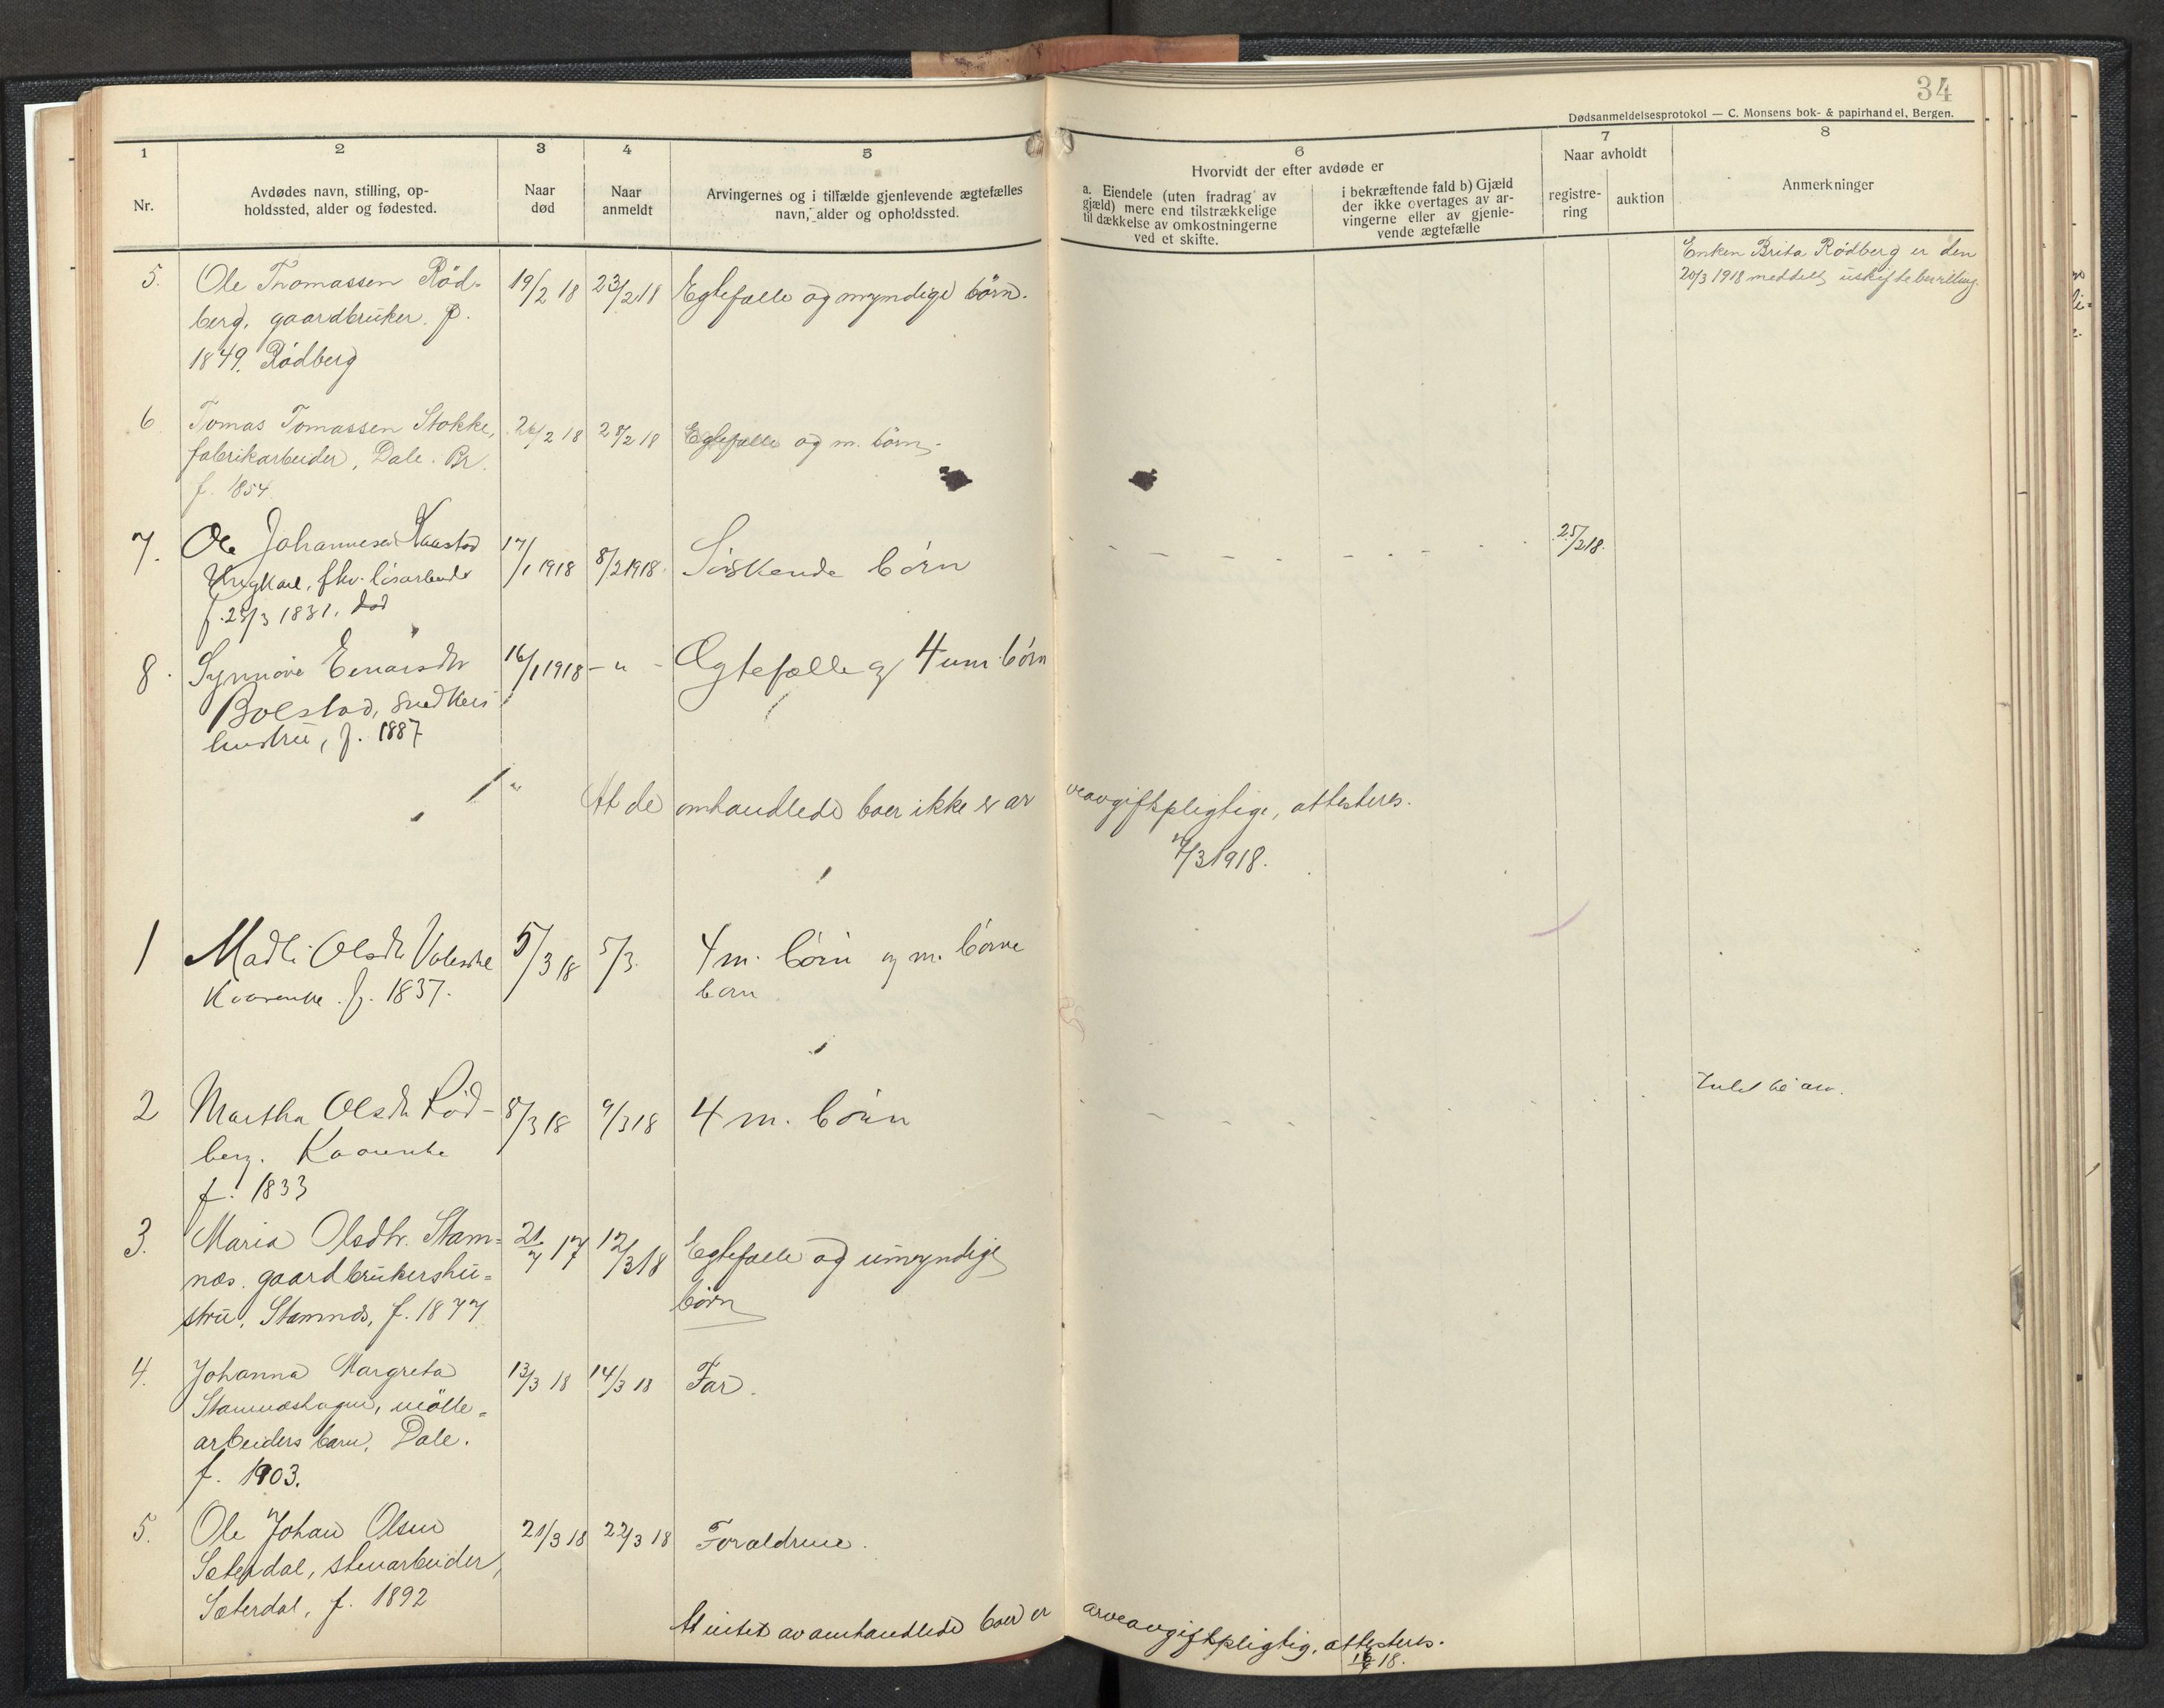 34
Dødsanmeldelsesprotokol — C. Monsens bok- & papirhandel, Bergen.
1 2 3 4 5 6 7 8
Nr.
Avdødes navn, stilling, op-
holdssted, alder og fødested.
Naar
død
Naar
anmeldt
Arvingernes og i tilfælde gjenlevende ægtefælles
navn, alder og opholdssted.
Hvorvidt der efter avdøde er
a. Eiendele (uten fradrag av
gjæld) mere end tilstrækkelige
til dækkelse av omkostningerne
ved et skifte.
i bekræftende fald b) Gjæld
der ikke overtages av ar-
vingerne eller av gjenle-
vende ægtefælle
Naar avholdt
registre-
ring
auktion
Anmerkninger
5. Ole Thomassen Rød- 19/2 18 23/2 18 Egtefælle og myndige børn.
berg, gaardbruker. f.
1849. Rødberg
Enken Brita Rødberg er den
20/3 1918 meddelt uskiftebevilling.
6 Tomas Tomassen Stokke, 26/2 18 28/2 18 Egtefælle og m. børn.
fabrikarbeider, Dale. Br.
f. 1854
7. Ole Johannesen 17/1 1918 8/2 1918. Søskende børn 25/2 18.
fhv. løsarbeider
f. 23/3 1831.
8. Synnøve Einarsdtr 16/1 1918 - " - Ægtefælle og 4 um. børn
Bolstad, snedkers
hustru, f. 1887
At de omhandlede boer ikke er arveavgiftspligtige, attesteres.
7/3 1918.
1 Madli Olsdtr 5/3 18 5/3. 4 m. børn og m. børne
Kaarenke. f. 1837. børn
2 Martha Olsdtr Rød- 8/3 18 9/3 18 4 m. børn
berg. Kaarenke
f. 1833
Intet bo
3. Maria Olsdtr. Stam- 21/7 17 12/3 18 Egtefælle og umyndige
næs. gaardbrukershu- børn
stru, Stamnæs, f. 1877
4. Johanna Margreta 13/3 18 14/3 18 Far.
Stamnæshagen, mølle-
arbeiders barn, Dale.
f. 1903.
5. Ole Johan Olsen 21/3 18 22/3 18 Forældrene.
Sæterdal, stenarbeider,
Sæterdal, f. 1892
At intet av omhandlede boer er arveavgiftspligtig, attesteres.
18.